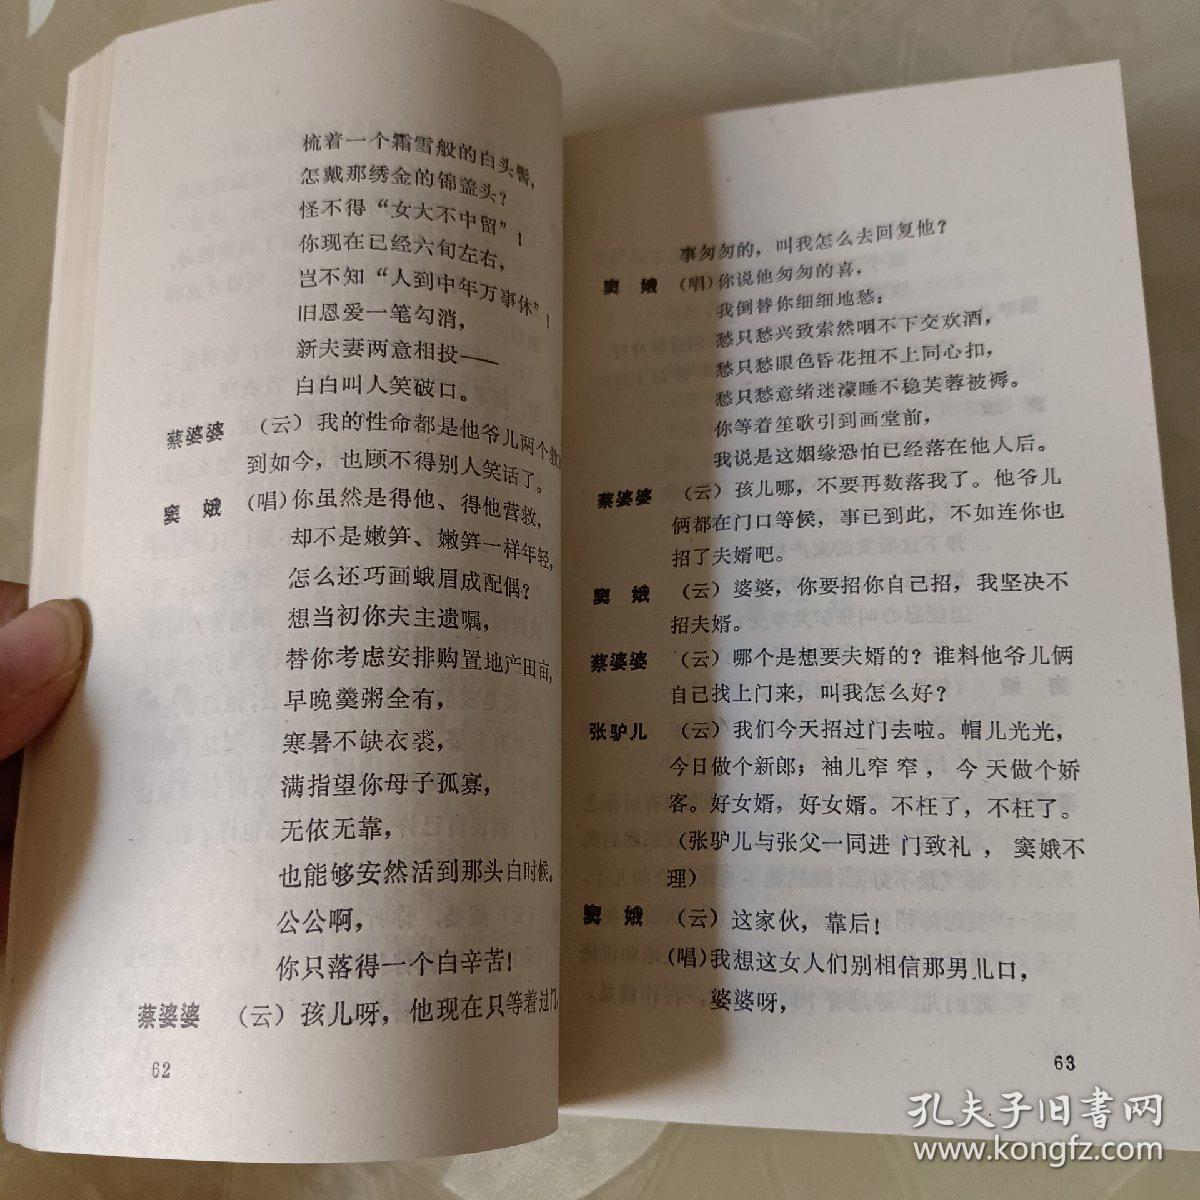 梳着一个霜雪般的白头髻，
怎戴那绣金的锦盖头？
怪不得“女大不中留”！
你现在已经六旬左右，
岂不知“人到中年万事休”！
旧恩爱一笔勾消，
新夫妻两意相投——
白白叫人笑破口。
蔡婆婆 （云）我的性命都是他爷儿两个救
到如今，也顾不得别人笑话了。
窦 娥 （唱）你虽然是得他、得他营救，
却不是嫩笋、嫩笋一样年轻，
怎么还巧画蛾眉成配偶？
想当初你夫主遗嘱，
替你考虑安排购置地产田亩，
早晚羹粥全有，
寒暑不缺衣裘，
满指望你母子孤寡，
无依无靠，
也能够安然活到那头白时候。
公公啊，
你只落得一个白辛苦！
蔡婆婆 （云）孩儿呀，他现在只等着过门，
62
事匆匆的，叫我怎么去回复他？
窦 娥 （唱）你说他匆匆的喜，
我倒替你细细地愁；
愁只愁兴致索然咽不下交欢酒，
愁只愁眼色昏花扭不上同心扣，
愁只愁意绪迷濛睡不稳芙蓉被褥。
你等着笙歌引到画堂前，
我说是这姻缘恐怕已经落在他人后。
蔡婆婆 （云）孩儿哪，不要再数落我了。他爷儿
俩都在门口等候，事已到此，不如连你也
招了夫婿吧。
窦 娥 （云）婆婆，你要招你自己招，我坚决不
招夫婿。
蔡婆婆 （云）哪个是想要夫婿的？谁料他爷儿俩
自己找上门来，叫我怎么好？
张驴儿 （云）我们今天招过门去啦。帽儿光光，
今日做个新郎；袖儿窄窄，今天做个娇
客。好女婿，好女婿。不枉了，不枉了。
（张驴儿与张父一同进门致礼，窦娥不
理）
窦 娥 （云）这家伙，靠后！
（唱）我想这女人们别相信那男儿口，
婆婆呀，
63
孔夫子旧书网
www.kongfz.com